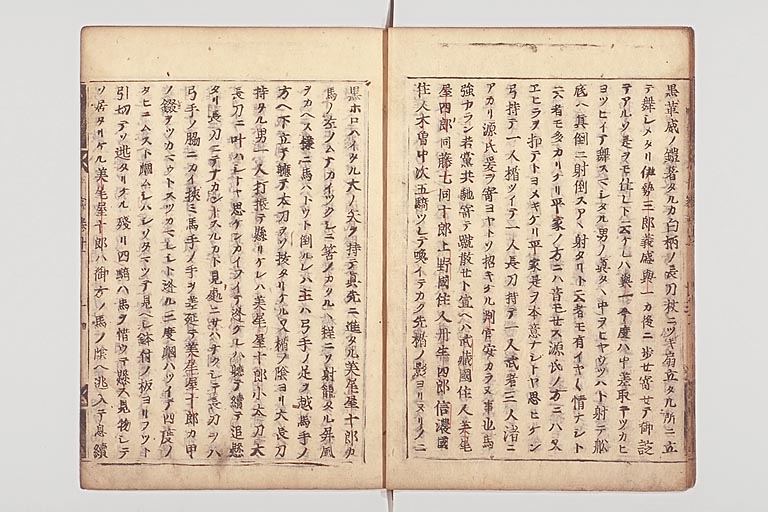 黒革威ノ鎧著タルカ白柄ノ長刀杖ニツキ扇立タル所ニ立
テ舞シメタリ伊勢三郎義盛與一カ後ニ歩セ寄セテ御諚
テアルソ是ヲモ仕レト云ケレハ與一今度ハ中差取テツカヒ
ヨツヒイテ舞スマシタル男ノ真タヽ中ヲヒヤウツハト射テ舩
底ヘ真倒ニ射倒スアヽ射タリト云者モ有イヤイヤ情ナシト
云者モ多カリケリ平家ノ方ニハ音モセス源氏ノ方ニハ又
エヒラヲ扣テトヨメキケリ平家是ヲ本意ナシトヤ思ヒケン
弓持テ一人楯ツイテ一人長刀持テ一人武者三人渚ニ
アカリ源氏爰ヲ寄ヨヤトソ招キケル判官安カラヌ事也馬
強カラン若黨共馳寄テ蹴散セト宣ヘハ武蔵國住人美尾
屋四郎同藤七同十郎上野國住人丹生四郎信濃國
住人木曽中次五騎ツレテ喚イテカク先楯ノ影ヨリヌリノニ
黒ホロハイタル大ノ矢ヲ持テ真先ニ進タル美尾屋十郎カ
馬ノ左ノムナカイツクシニ筈ノカクルヽ程ニソ射籠タル屏風
ヲカヘス様ニ馬ハトウト倒ルレハ主ハ弓手ノ足ヲ越馬手ノ
方ヘ下立テ軈テ太刀ヲソ抜タリケル又楯ノ陰ヨリ大長刀
持タル男一人打振テ懸リケレハ美尾屋十郎小太刀大
長刀ニ叶ハシトヤ思ケンカイフイテ逃ケレハ軈テ續テ追懸
タリ長刀ニテナカンスルカト見處ニサハナクシテ長刀ヲハ
弓手ノ脇ニカイ挟ミ馬手ノ手ヲ差延テ美尾屋十郎カ甲
ノ錣ヲツカマウトスツカマレシト逃ル三度ツカミハツイテ四度ノ
タヒニムスト
引切テソ逃タリケル残リ四騎ハ馬ヲ惜ウテ懸ス見物シテ
ソ居タリケル美尾屋十郎ハ御方ノ馬ノ陰ヘ逃入テ息續